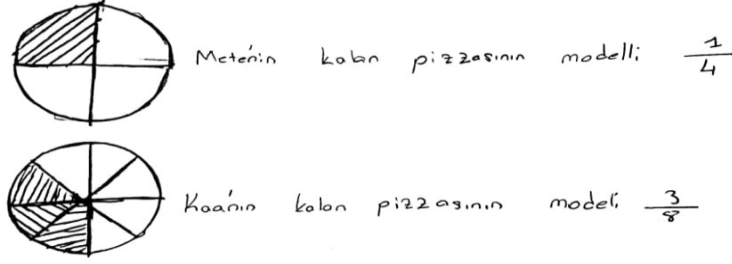 Mete'nin kalan pizzasının modelli 1/4
Kaan'ın kalan pizzasının modeli 3/8